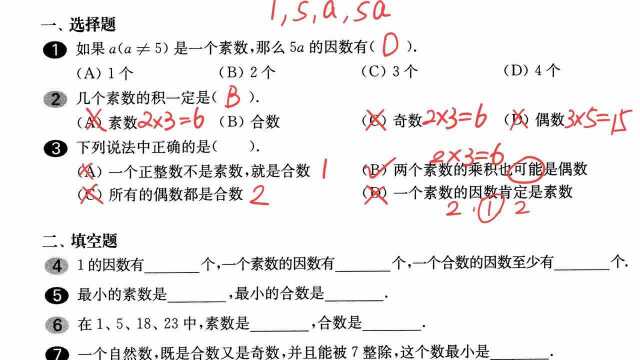 1,5,a,5a
一、选择题
1 如果 a(a ≠ 5) 是一个素数,那么 5a 的因数有( D ).
(A) 1个 (B) 2个 (C) 3个 (D) 4个
2 几个素数的积一定是( B ).
(A) 素数 2×3=6 (B) 合数 (C) 奇数 2×3=6 (D) 偶数 3×5=15
3 下列说法中正确的是( ).
2×3=6
(A) 一个正整数不是素数,就是合数 1 (B) 两个素数的乘积也可能是偶数
(C) 所有的偶数都是合数 2 (D) 一个素数的因数肯定是素数
2. 1 2
二、填空题
4 1的因数有______个,一个素数的因数有______个,一个合数的因数至少有______个.
5 最小的素数是______,最小的合数是______.
6 在 1、5、18、23 中,素数是______,合数是______.
7 一个自然数,既是合数又是奇数,并且能被 7 整除,这个数最小是______.